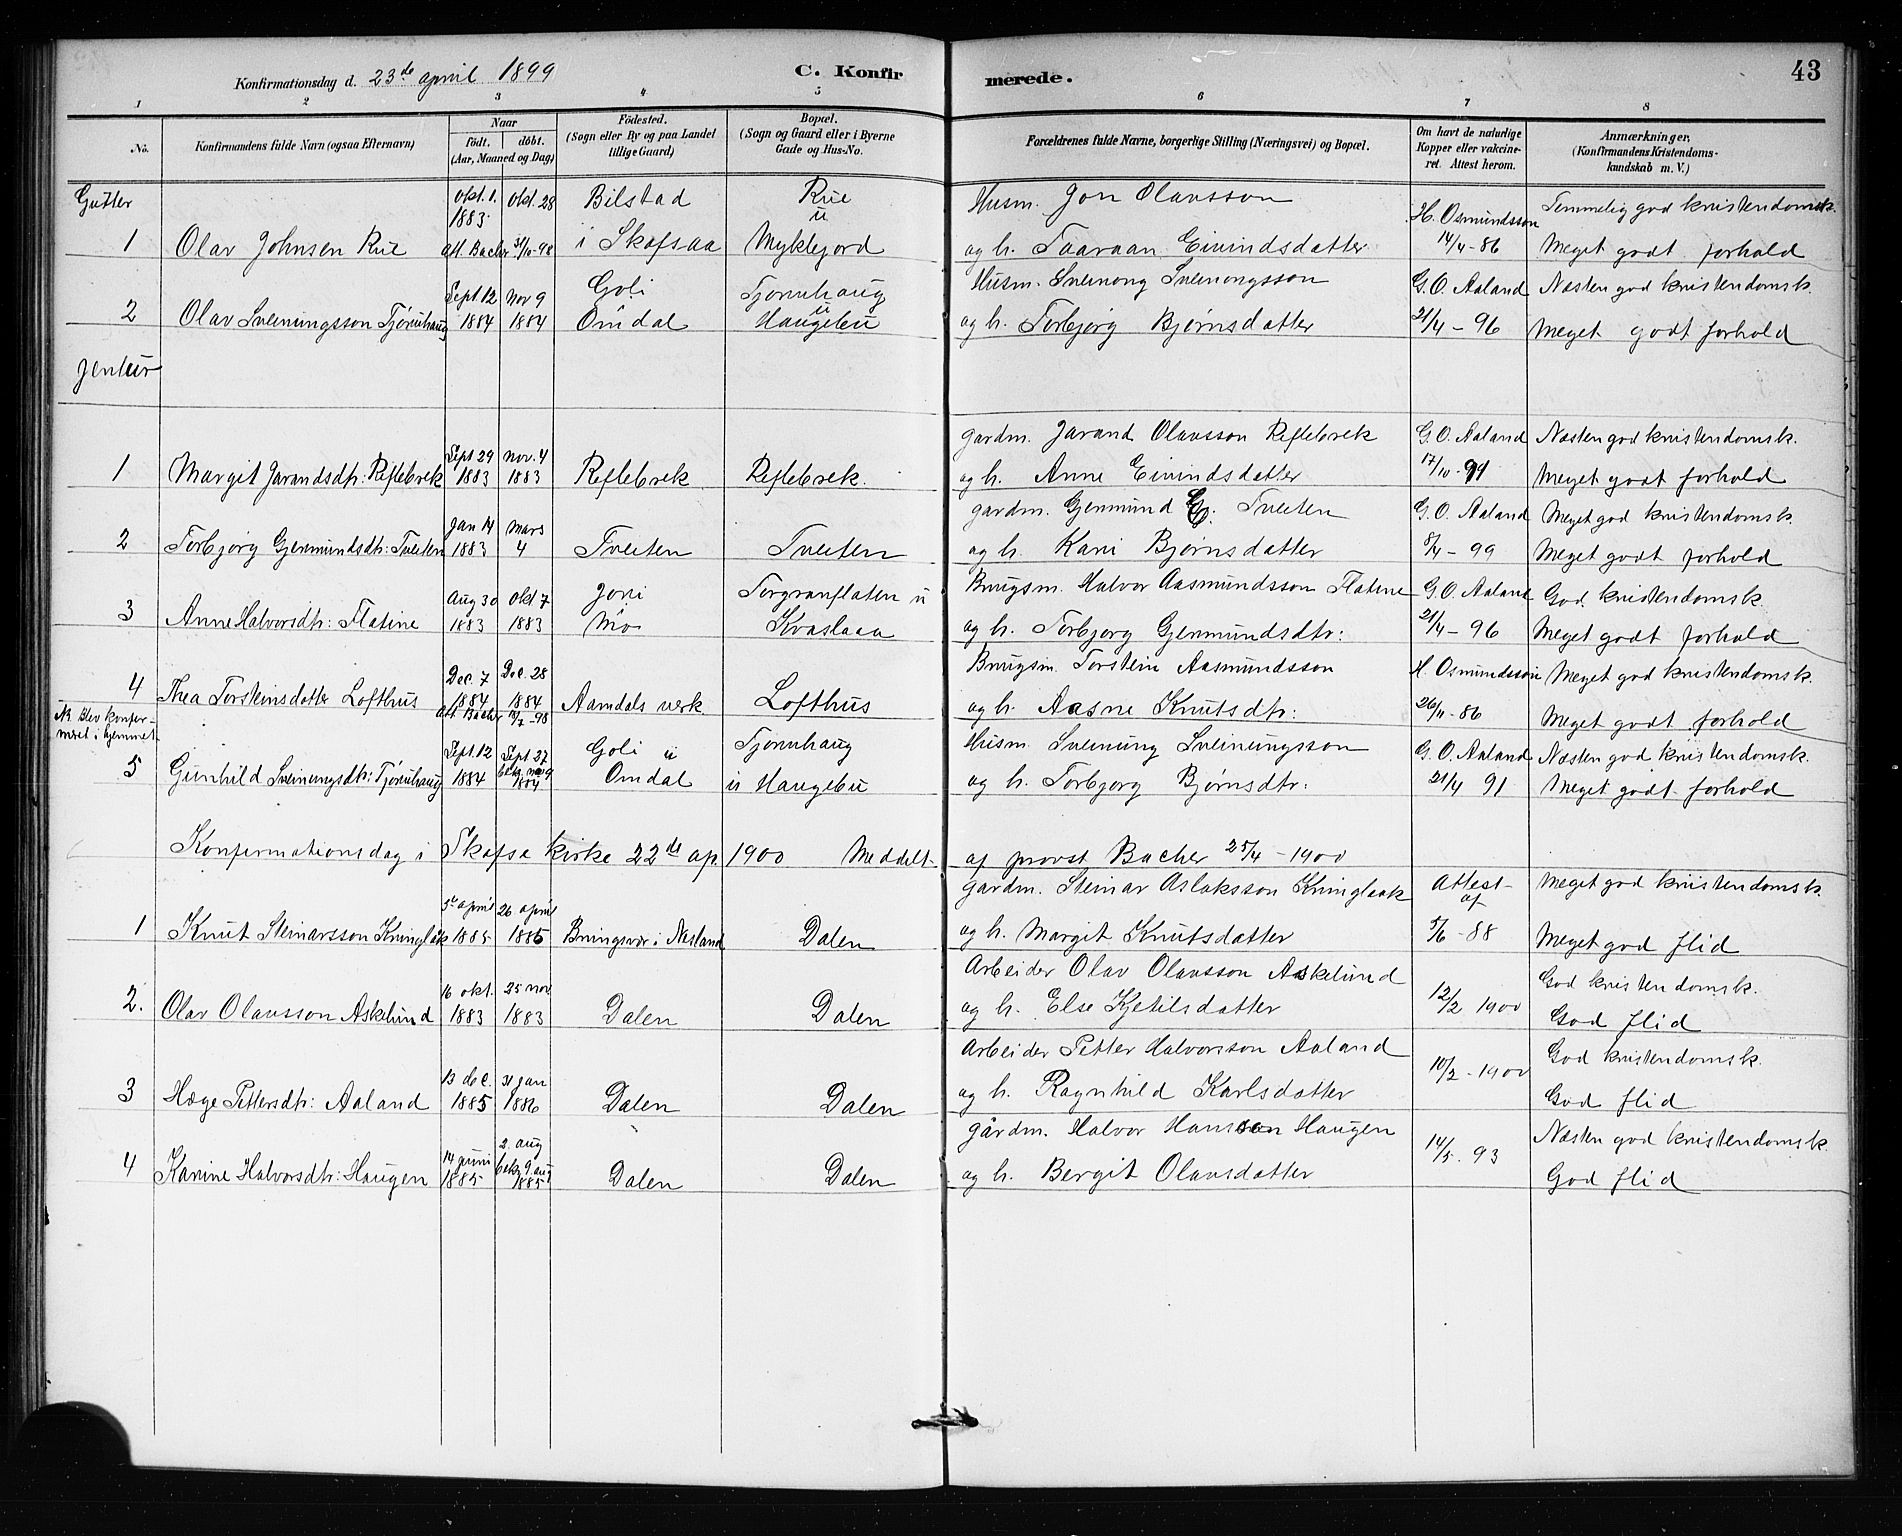 Konfirmationsdag d. 23de april 1899 C. Konfirmerede. 43
1 2 3 4 5 6 7 8
No. Konfirmandens fulde Navn (ogsaa Efternavn) Naar født. døbt. (Aar, Maaned og Dag) Fødested. (Sogn eller By og paa Landet tillige Gaard) Bopæl. (Sogn og Gaard eller i Byerne Gade og Hus-No. Forældrenes fulde Navne, borgerlige Stilling (Næringsvei) og Bopæl. Om havt de naturlige Kopper eller vakcineret. Attest herom. Anmærkninger, (Konfirmandens Kristendomskundskab m. V.)
Gutter
okt. 1. 1883. okt. 28 Bilstad Rue u Husm. Jon Olavsson H. Osmundsson Temmelig god kristendomsk.
1 Olav Johnsen Rue att. Bacher 31/10-98 i Skafsaa Myklejord og h. Taaraan Eivindsdatter 14/4-86 Meget godt forhold
Sept. 12 Nov 9 Goli Tjørnhaug u Husm. Sveinong Sveinongsson G.O. Aaland Næsten god kristendomsk.
2 Olav Sveinungsson Tjørnhaug 1884 1884 Omdal Haugebu og h. Torbjørg Bjørnsdatter 21/4-96 Meget godt forhold
Jenter
gardm. Jarand Olavsson Reflebrek G.O. Aaland Næsten god kristendomsk.
1 Margit Jarandsdtr: Reflebrek Sept 29 1883 nov. 4 1883 Reflebrek Reflebrek. og h. Anne Eivindsdatter 17/10-91 Meget godt forhold
gardm. Gjermund G. Tveiten G.O. Aaland Meget god kristendomsk.
2 Torbjørg Gjermundsdtr: Tveiten Jan 14 1883 Mars 4 Tveiten Tveiten og h. Kari Bjørnsdatter 8/4-99 Meget godt forhold
Aug 30 okt 7 Joni Torgranflaten u Brugsm. Halvor Aasmundsson Flatine G.O. Aaland God kristendomsk
3 Anne Halvorsdtr: Flatine 1883 1883 Mo Kvaslaaa og h. Torbjorg Gjermundsdtr: 21/4-96 Meget godt forhold
Dec. 7 Dec. 28 Brugsm. Torstein Aasmundsson H. Osmundsson Meget god kristendomsk.
4 Thea Torsteinsdatter Lofthus 1884 1884 att Bacher 12/7-98 Aamdals verk. Lofthus og h. Aasne Knutsdtr: 26/11-86 Meget godt forhold
N. Blev konfermeret i hjemmet
Sept. 12 Sept 27 Goli u Tjørnhaug Husm. Sveinung Sveinungsson G.O. Aaland Næsten god kristendomsk.
5 Gunhild Sveinungsdtr: Tjørnhaug 1884 bekr. nov 9 1884 Omdal u Haugebu og h. Torbjorg Bjørnsdtr: 21/4 91 Meget godt forhold
Konfermationsdag i Skafsa kirke 22de ap. 1900 Meddelt af provst Bacher 25/4-1900
5te april 26 april gardm. Steinar Aslaksson Kringlaak Attest af Meget god kristendomsk.
1 Knut Steinarsson Kringlåk 1885 1885 Bringsvær i Nesland Dalen og h. Margit Knutsdatter 5/6-88 Meget god flid
16 okt. 25 nov Arbeider Olav Olavsson Askelund God kristendomsk.
2. Olav Olavsson Askelund 1883 1883 Dalen Dalen og h. Else Kjetilsdatter 12/2 1900 God flid
13 dec. 31 jan Arbeider Petter Halvorsson Aaland God kristendomsk.
3 Hæge Pettersdtr: Aaland 1885 1886 Dalen Dalen og h. Ragnhild Karlsdatter 10/2-1900 God flid
14 juni 2. aug gårdm. Halvor Hansson Haugen Næsten god kristendomsk
4 Karine Halvorsdtr: Haugen 1885 bekr 9. aug 1885 Dalen Dalen og h. Bergit Olavsdatter 14/5. 93 God flid